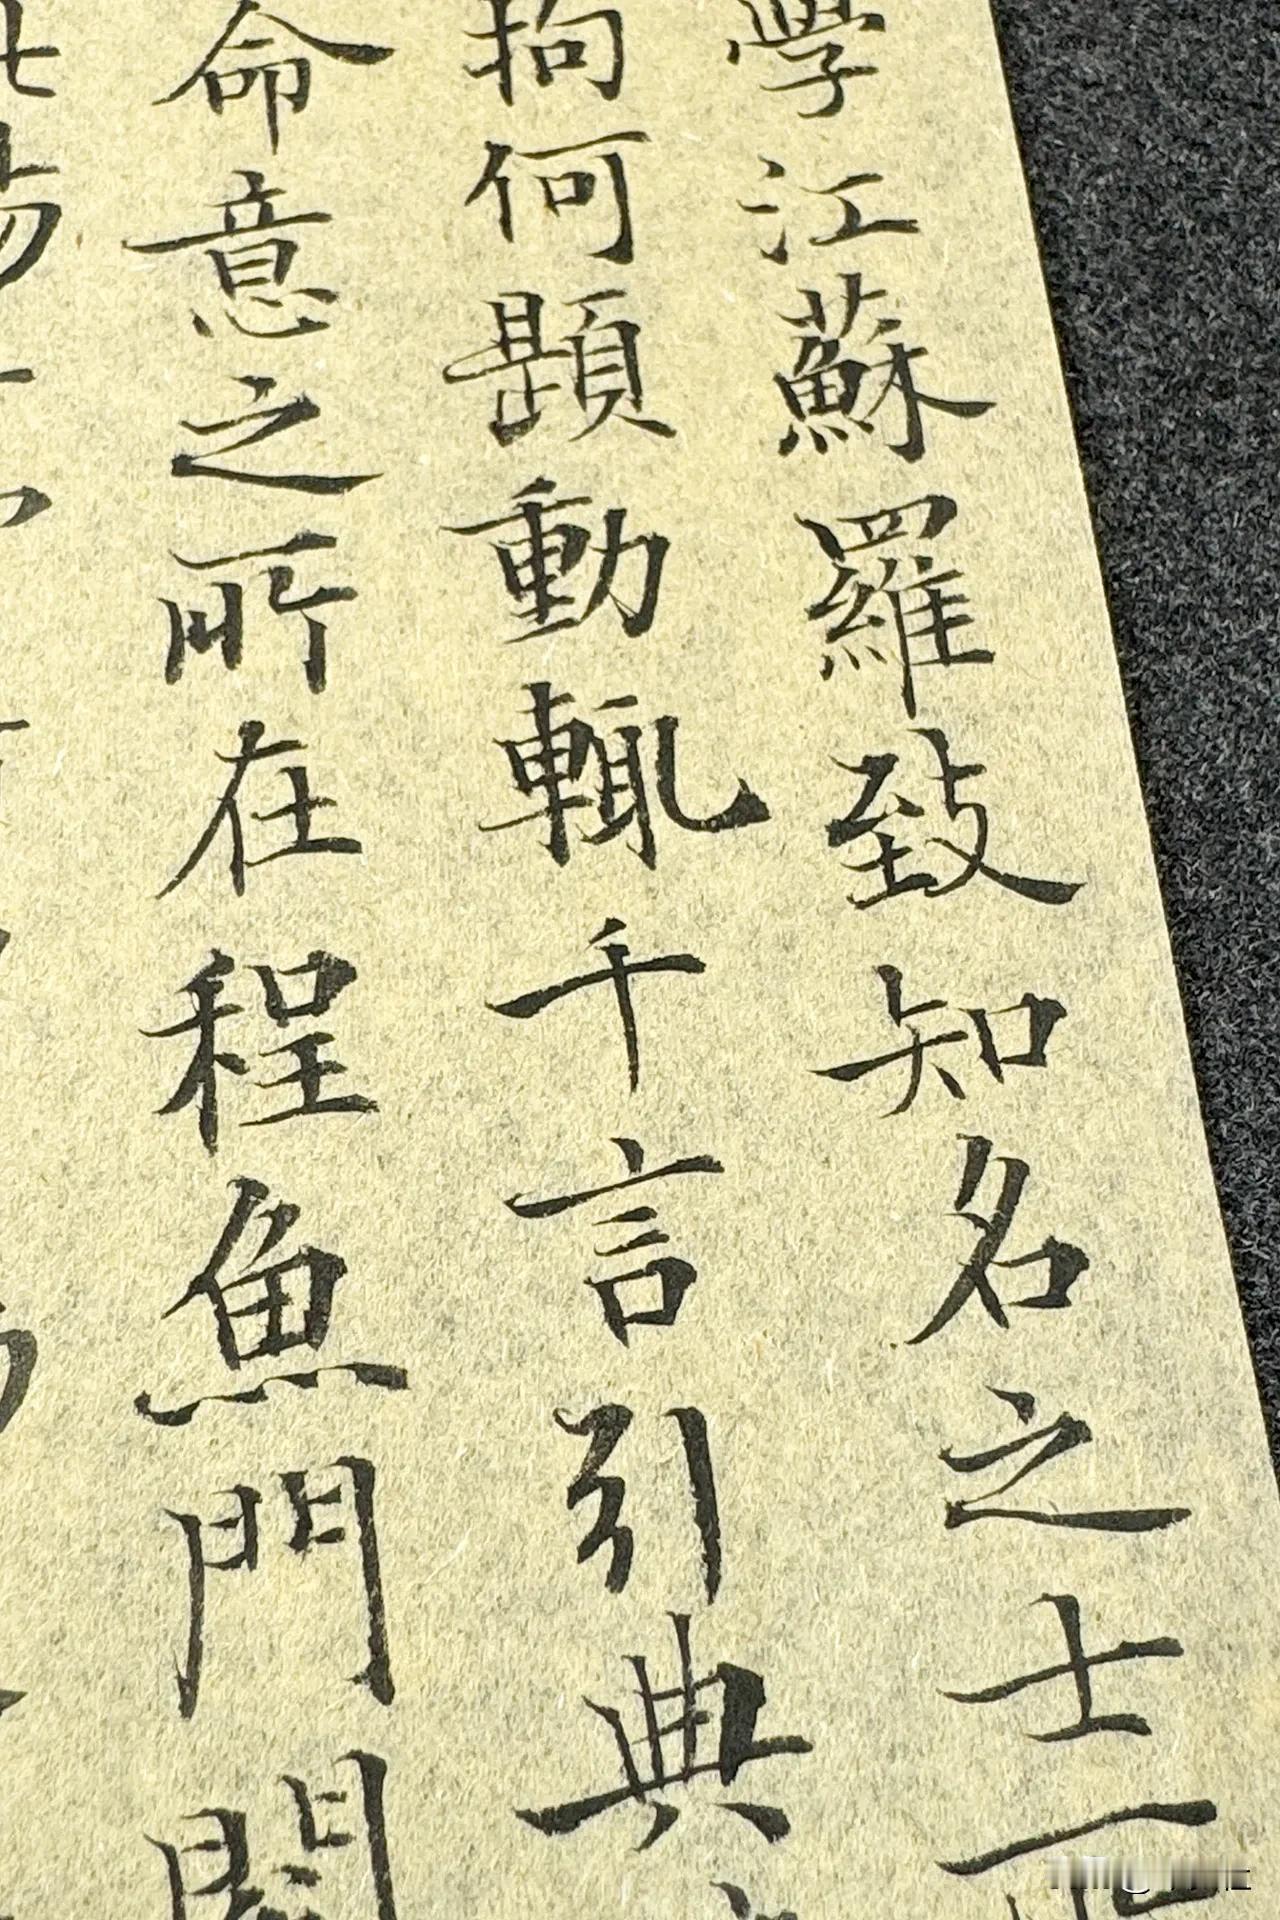 學江蘇羅致知名之士
拘何題動輒千言引典
命意之所在程魚門